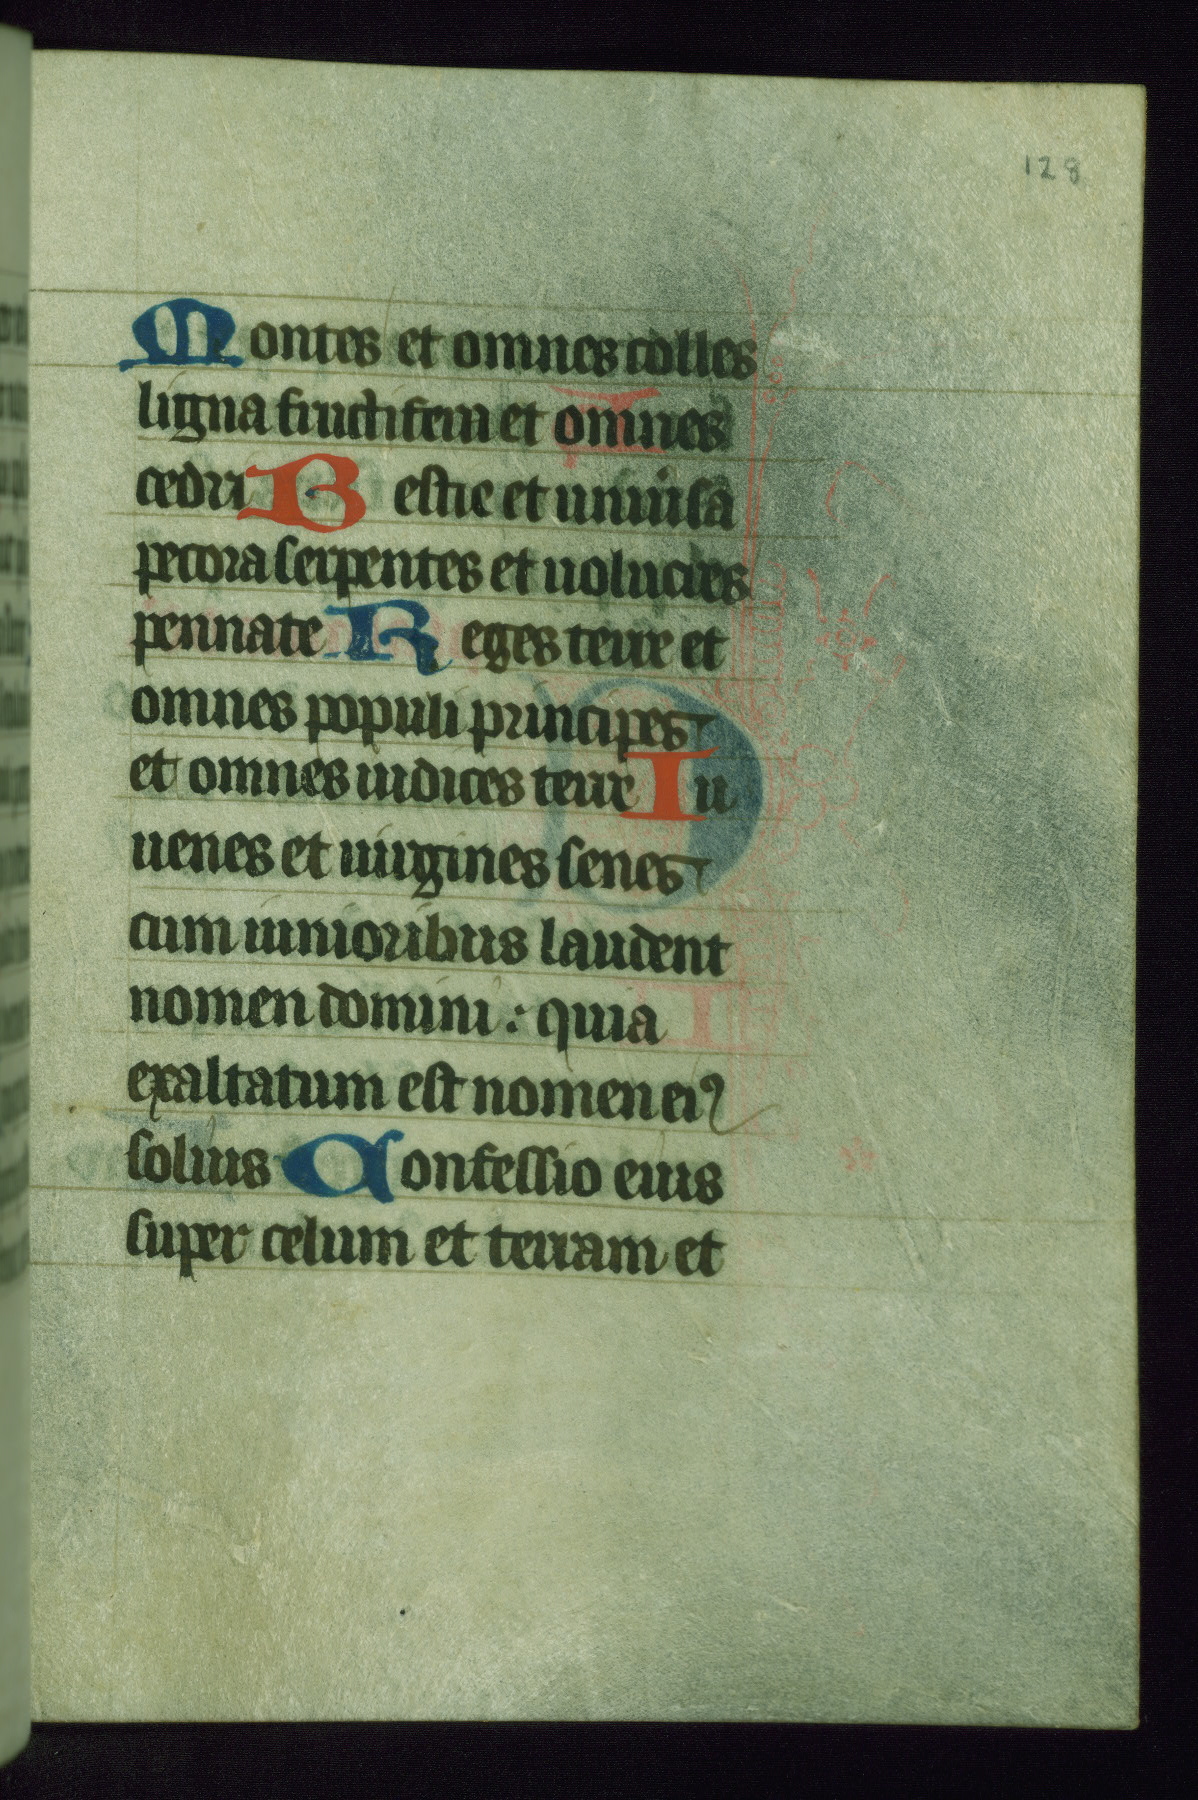 128
Montes et omnes colles
ligna fructifera et omnes
cedri Bestie et uniuˀsa
pecora serpentes et uolucres
pennate Reges terre et
omnes populi principes
et omnes iudices terre Iu
uenes et uirgines senes
cum iunioribus laudent
nomen domini : quia
exaltatum est nomen eiꝰ
solius Confessio eius
super celum et terram et